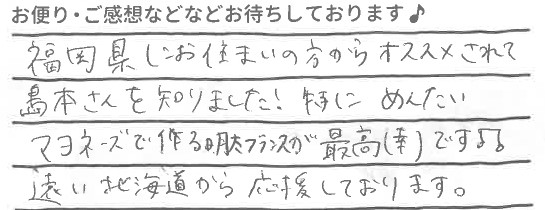 お便り・ご感想などなどお待ちしております♪
福岡県にお住まいの方からオススメされて
島本さんを知りました！特に めんたい
マヨネーズで作る明太フランスが最高(幸)です♪♪
遠い北海道から応援しております。